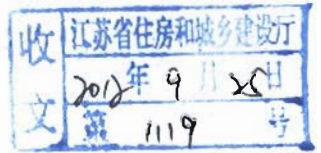 收文
江苏省住房和城乡建设厅
2012年9月25日
第1119号